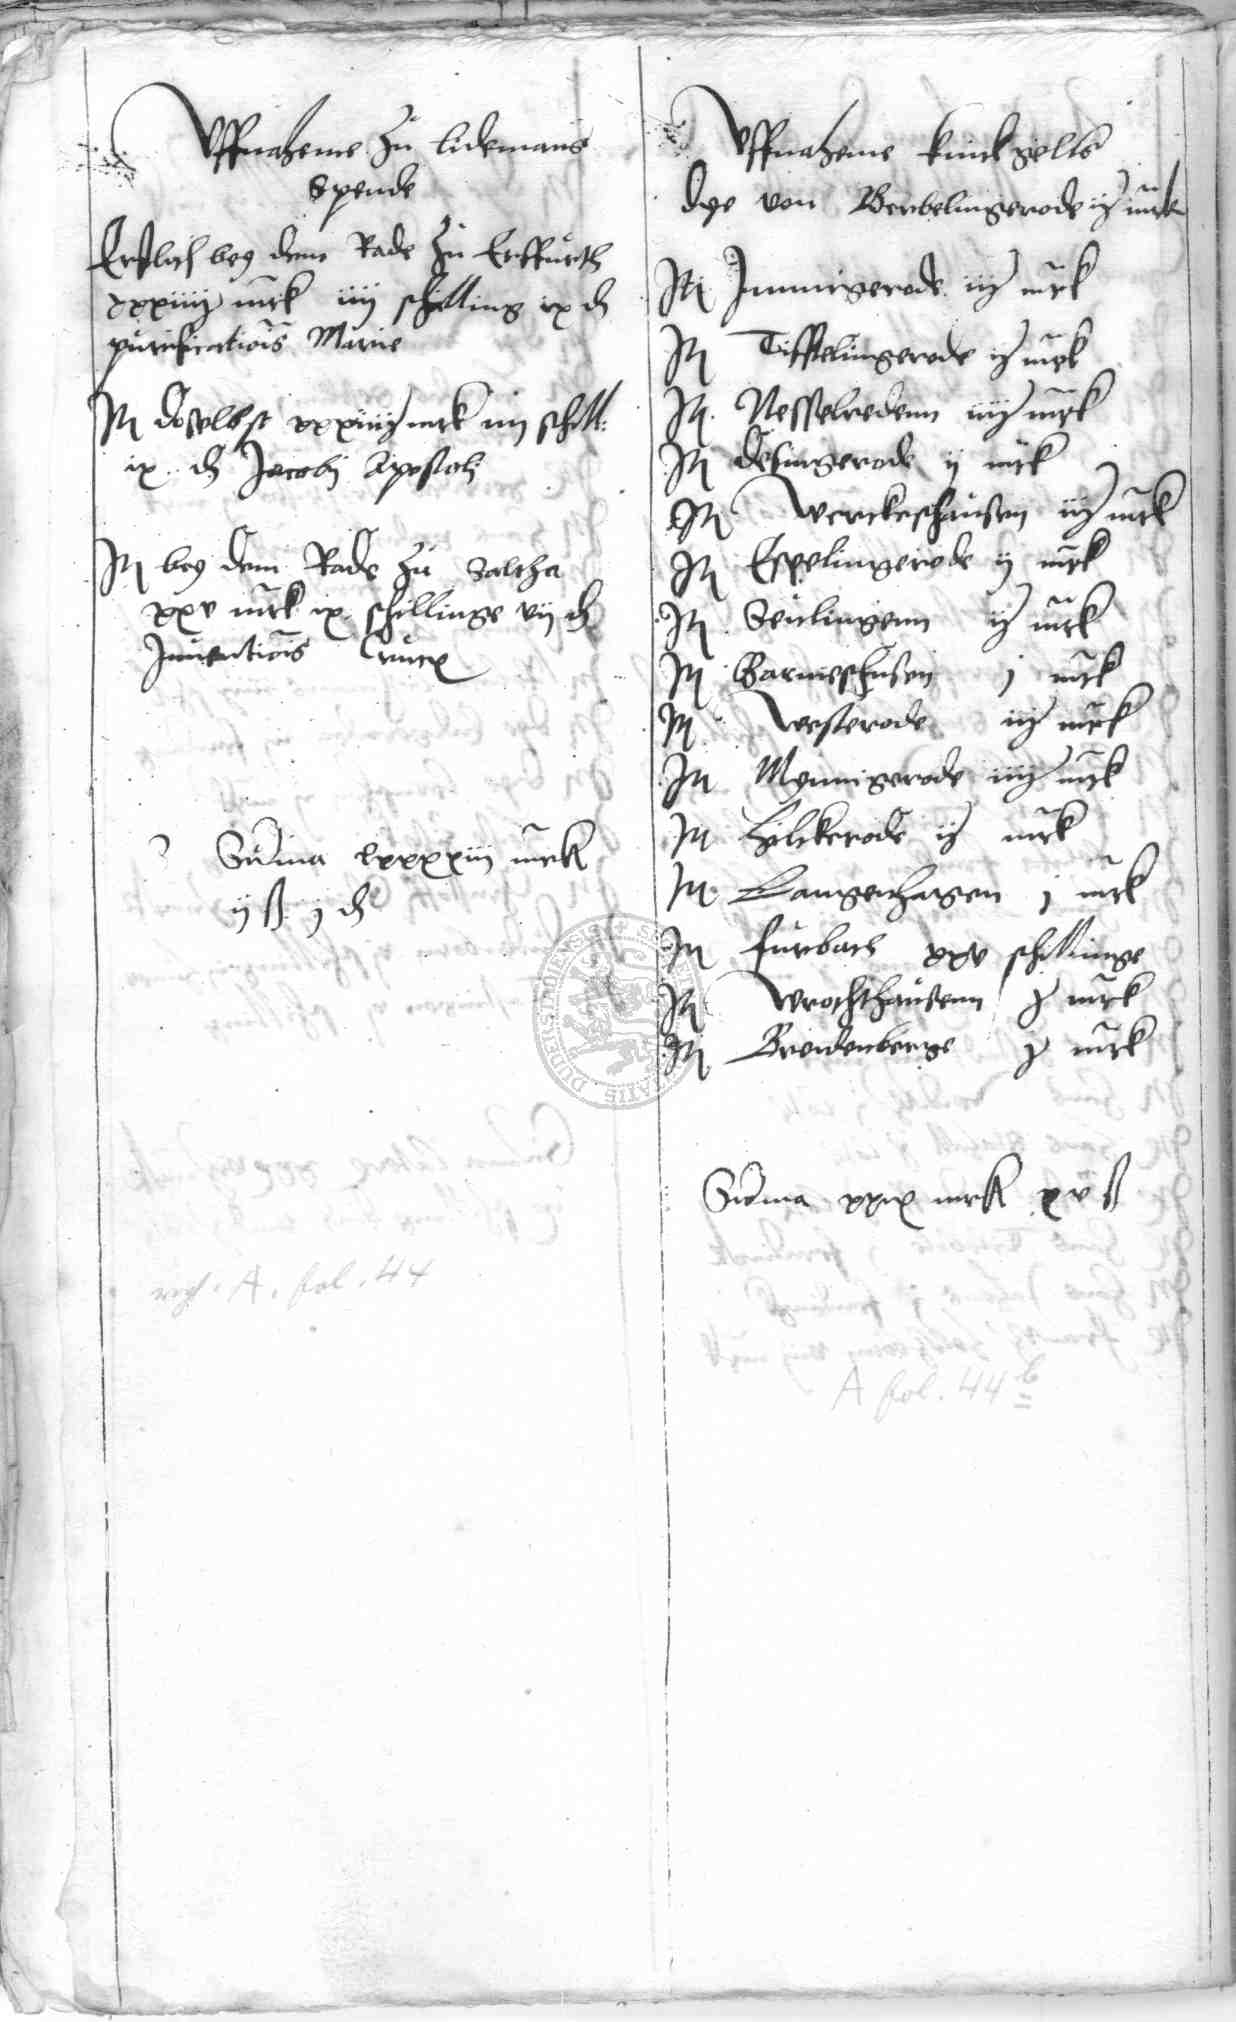 Uffnaheme zu lidemans
Spende
Erstlich bey dem Rade zu Erffurth
xxxiiij mrk iiij schilling ix d
purificationis Marie
Itm doselbst xxxiiij mrk iiij schill:
ix d Jacobj Apostolj
Itm bey dem Rade zu Saltza
xxv mrk ix schillinge vij d
Inuentionis Crucx
Summa lxxxxiij mrk
ij ß j d
A. fol. 44
Uffnaheme gelts
dye von Berbelingerode ij mrk
Itm Immigerode iij mrk
Itm Tifftelingerode ij mrk
Itm Nesselredenn iiij mrk
Itm desingerode ij mrk
Itm Werckeshausen iij mrk
Itm Espelingerode ij mrk
Itm Seulingenn ij mrk
Itm Barnieshusen j mrk
Itm Westerode iij mrk
Itm Mynnigerode iiij mrk
Itm Hilckerode ij mrk
Itm Langenhagen j mrk
Itm furbach xxv schillinge
Itm Wrochthausenn j mrk
Itm Breidenberge j mrk
Summa xxix mrk xv ß
A fol. 44 b